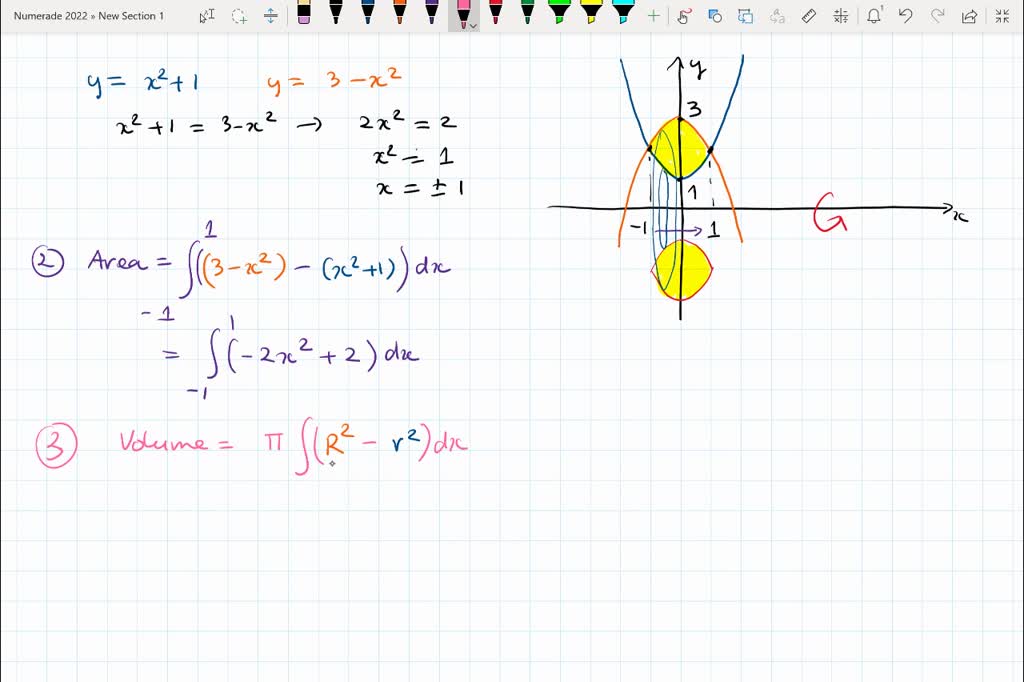 Numerade 2022 » New Section 1
y = x² + 1 y = 3 − x²
x² + 1 = 3 − x² → 2x² = 2
x² = 1
x = ± 1
y
3
1
−1 1
x
② Area = ∫₋₁¹ ((3 − x²) − (x² + 1)) dx
= ∫₋₁¹ (−2x² + 2) dx
③ Volume = π ∫ (R² − r²) dx